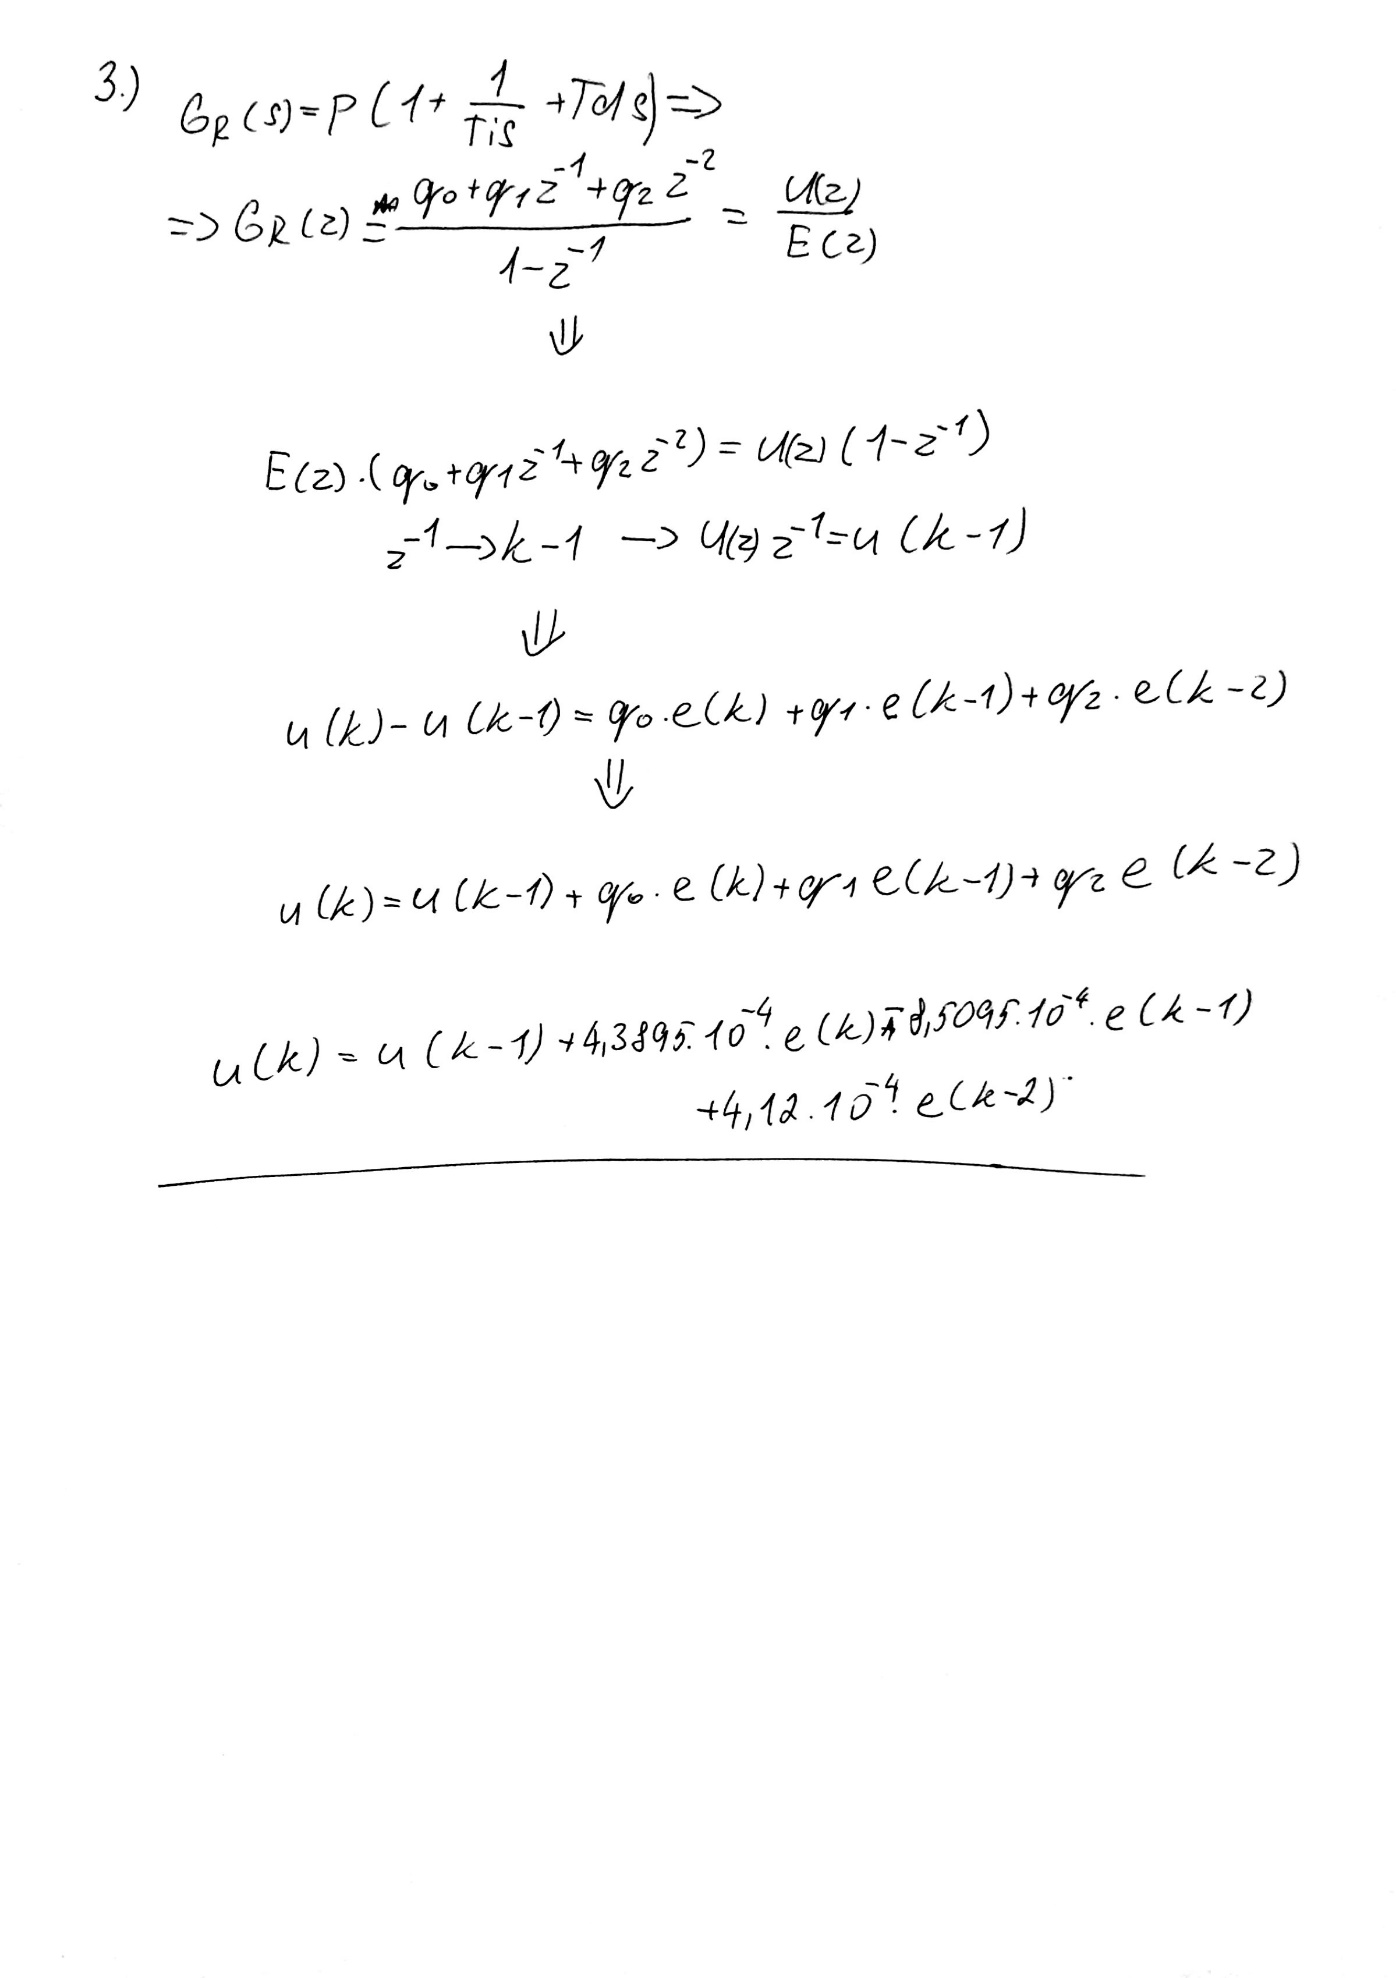 3.) G_R(s) = P(1 + 1/Tis + Tds) =>
=> G_R(z) = (q0 + q1 z^-1 + q2 z^-2)/(1 - z^-1) = U(z)/E(z)
⇓
E(z)·(q0 + q1 z^-1 + q2 z^-2) = U(z)(1 - z^-1)
z^-1 → k-1 → U(z) z^-1 = u(k-1)
⇓
u(k) - u(k-1) = q0·e(k) + q1·e(k-1) + q2·e(k-2)
⇓
u(k) = u(k-1) + q0·e(k) + q1 e(k-1) + q2 e(k-2)
u(k) = u(k-1) + 4,3895·10^-4·e(k) - 8,5095·10^-4·e(k-1)
+4,12·10^-4·e(k-2)